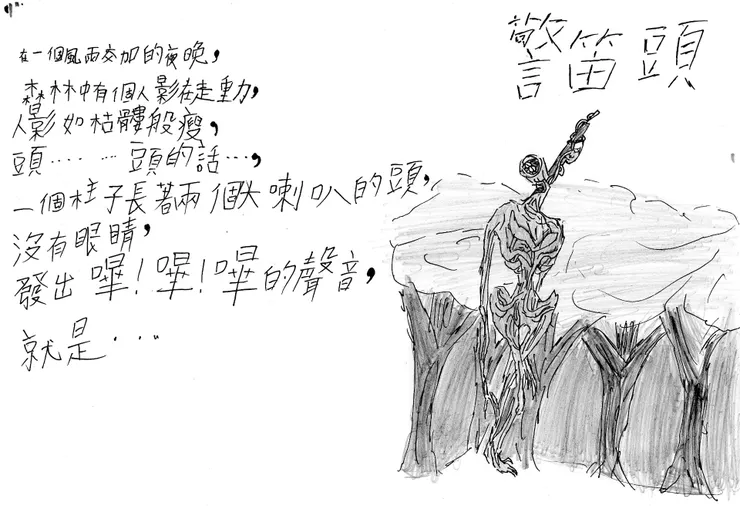 警笛頭
在一個風雨交加的夜晚，
森林中有個人影在走動，
人影如枯髏般瘦，
頭……頭的話…，
一個柱子長著兩個大喇叭的頭，
沒有眼睛，
發出嗶！嗶！嗶的聲音，
就是...